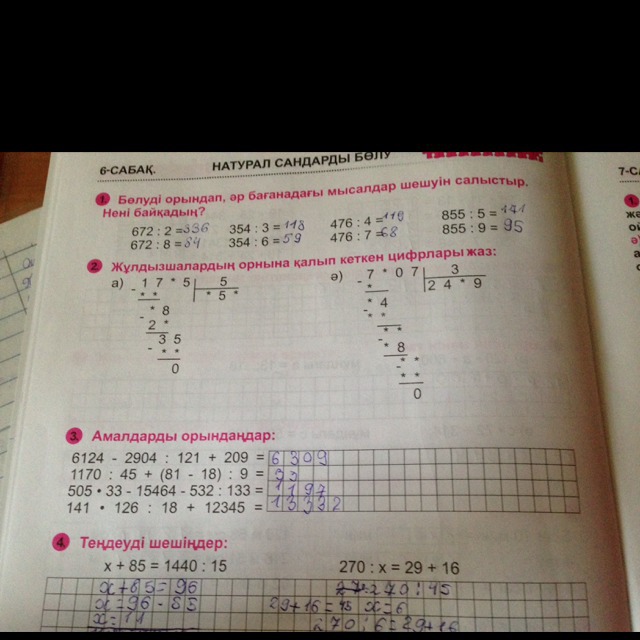 6-САБАҚ. НАТУРАЛ САНДАРДЫ БӨЛУ
1 Бөлуді орындап, әр бағанадағы мысалдар шешуін салыстыр.
Нені байқадың?
672 : 2 =336 354 : 3 =118 476 : 4 =119 855 : 5 =
672 : 8 =84 354 : 6 =59 476 : 7 =68 855 : 9 = 95
2 Жұлдызшалардың орнына қалып кеткен цифрларды жаз:
а) - 1 7 * 5 | 5 ә) - 7 * 0 7 | 3
* * | * 5 * * | 2 4 * 9
- * 8 - * 4
2 * * *
- 3 5 - * *
* * * 8
0 - * *
* *
0
3 Амалдарды орындаңдар:
6124 - 2904 : 121 + 209 = 6309
1170 : 45 + (81 - 18) : 9 = 33
505 • 33 - 15464 - 532 : 133 = 1197
141 • 126 : 18 + 12345 = 13332
4 Теңдеуді шешіңдер:
x + 85 = 1440 : 15 270 : x = 29 + 16
x+85=96 270:45
x=96-85 29+16=45 x=6
x=11 270:6=29+16
7-СА
1